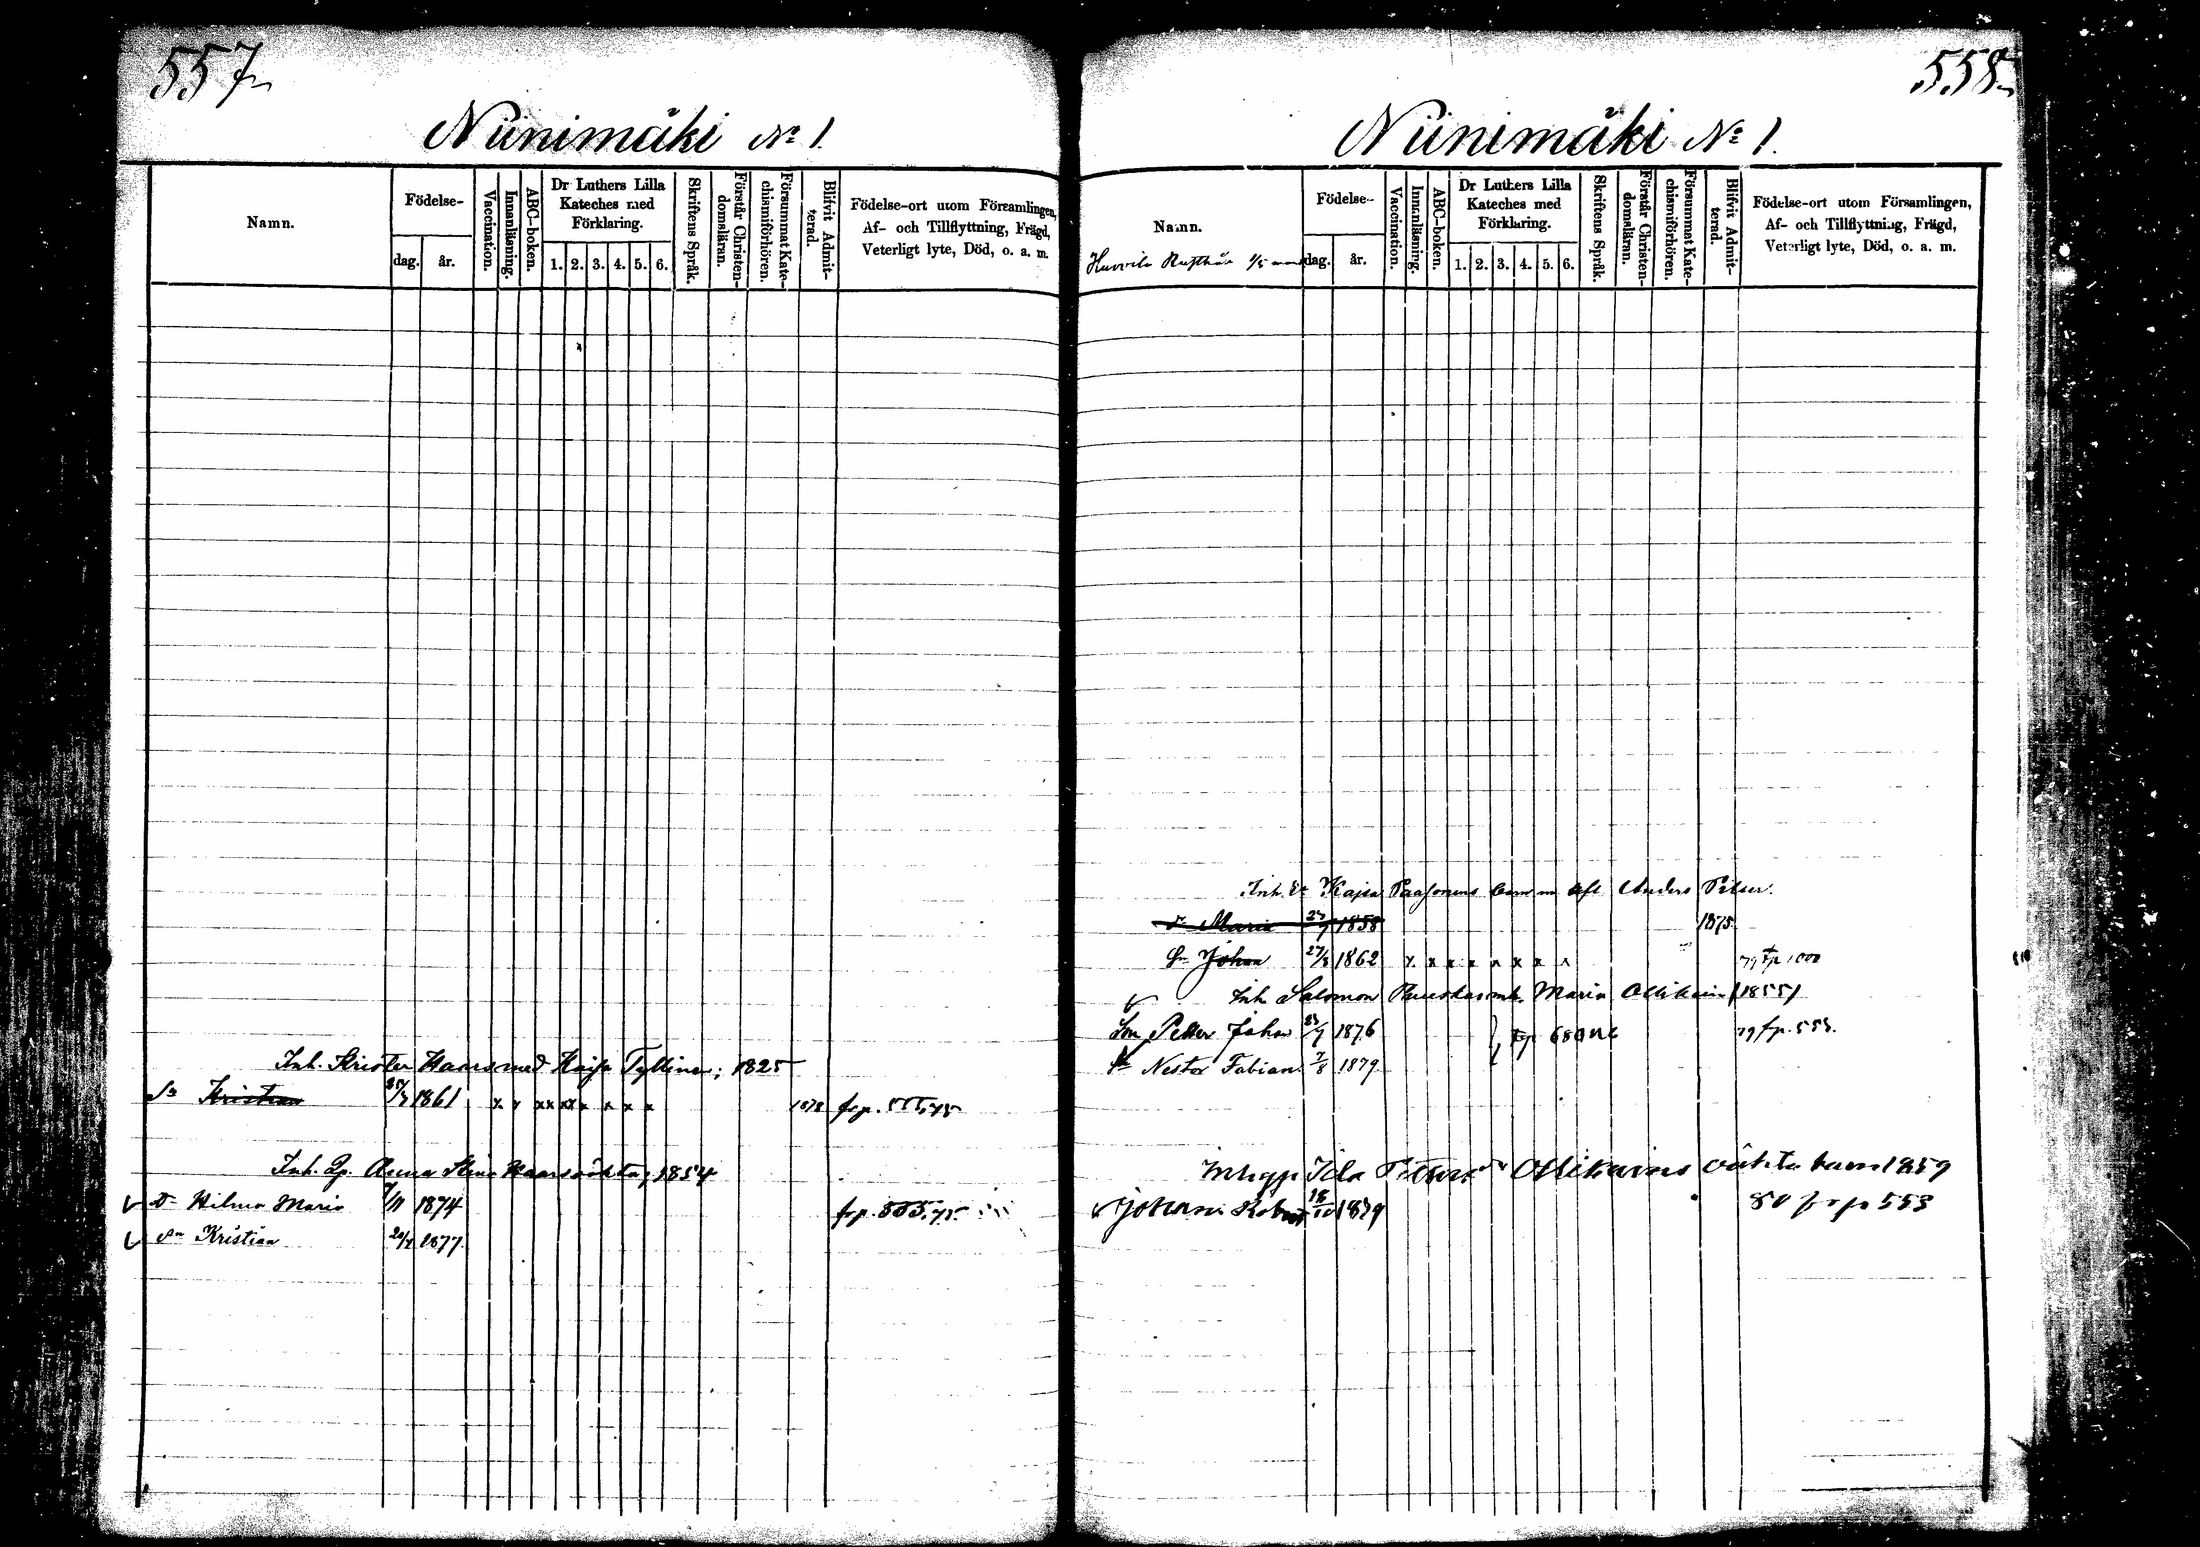 557
Niinimäki № 1.
Namn.
Födelse-
dag.
år.
Vaccination.
Innanläsning.
ABC-boken.
Dr Luthers Lilla
Kateches med
Förklaring.
1. 2. 3. 4. 5. 6.
Skriftens Språk.
Förstår Christen-
domsläran.
Försummat Kate-
chismiförhören.
Blifvit Admit-
terad.
Födelse-ort utom Församlingen,
Af- och Tillflyttning, Frägd,
Veterligt lyte, Död, o. a. m.
Inh. Krister Haars med Kaisa Tylline; 1825
Sn Kristian 1861 x x x x x x x x x 1878 frp. 555,75
Inh. Anna Stina 1854
Dr Hilma Maria 1874 frp. 555.75
Sn Kristian 1877
558
Niinimäki № 1.
Namn.
Födelse-
dag.
år.
Vaccination.
Innanläsning.
ABC-boken.
Dr Luthers Lilla
Kateches med
Förklaring.
1. 2. 3. 4. 5. 6.
Skriftens Språk.
Förstår Christen-
domsläran.
Försummat Kate-
chismiförhören.
Blifvit Admit-
terad.
Födelse-ort utom Församlingen,
Af- och Tillflyttning, Frägd,
Veterligt lyte, Död, o. a. m.
Inh. Kajsa Paasonens barn m afl Anders
dr Maria 1858 1875
Sn Johan 27/8 1862 x x x x x x x x 79 1000
Inh Salomon Maria Ollikain 1855
Son Petter Johan 1876 680 79 fp. 553.
Sn Nestor Fabian 7/8 1879
Ida Ollikainens oäkta barn 1859
Johan Robert 18/10 1879 80 553